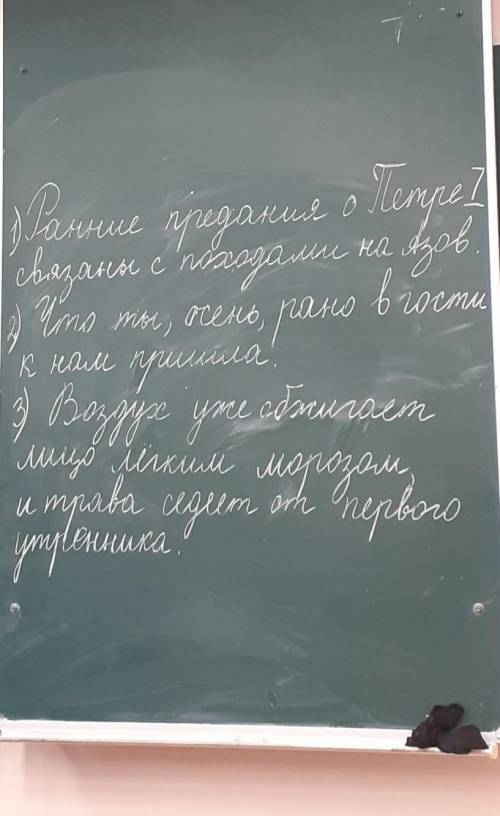 1) Ранние предания о Петре I
связаны с походами на Азов.
2) Что ты, осень, рано в гости
к нам пришла.
3) Воздух уже обжигает
лицо лёгким морозом,
и трава седеет от первого
утренника.